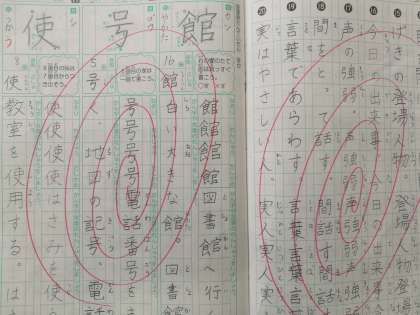 げきの登場人物。登場人物登
16
今日の出来事。今日の出来事
17
声の強弱。声強弱声強弱
18
間をとって話す。間話す間話
19
言葉であらわす。言葉言葉
20
実はやさしい人。実人実人実
館
カン
やかた
16
館館館図書館へ行
館白い大きな館。図書
号
ゴウ
5
号号号号電話番号を
号
地図の記号。電話
使
シ
つかう
8
使使使はさみを使
使
教室を使用する。は